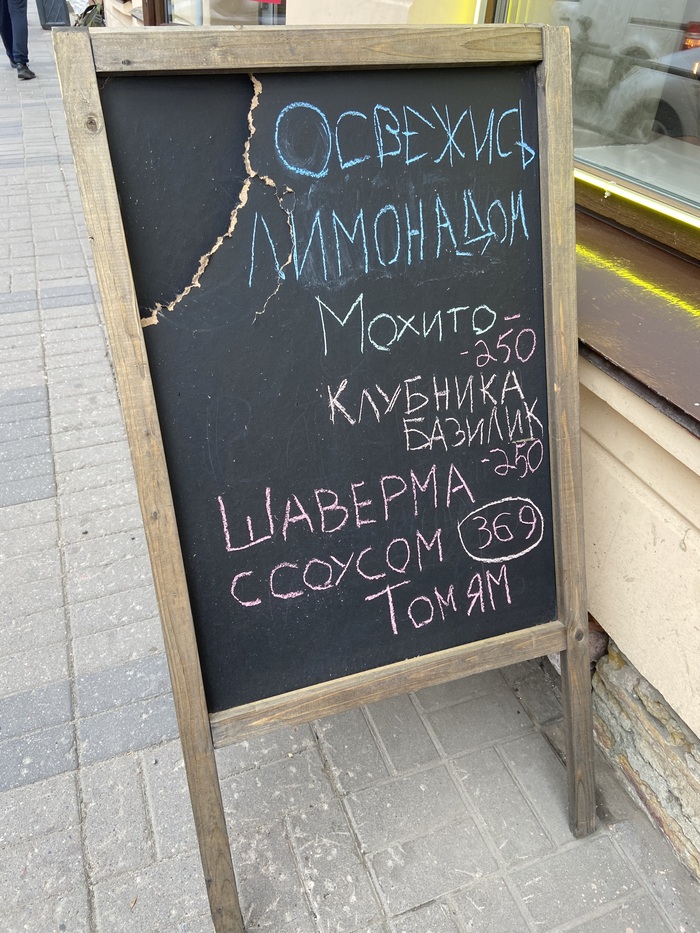 ОСВЕЖИСЬ
ЛИМОНАДОМ
МОХИТО -
-250
КЛУБНИКА
БАЗИЛИК
-250
ШАВЕРМА
С СОУСОМ 369
ТОМ ЯМ